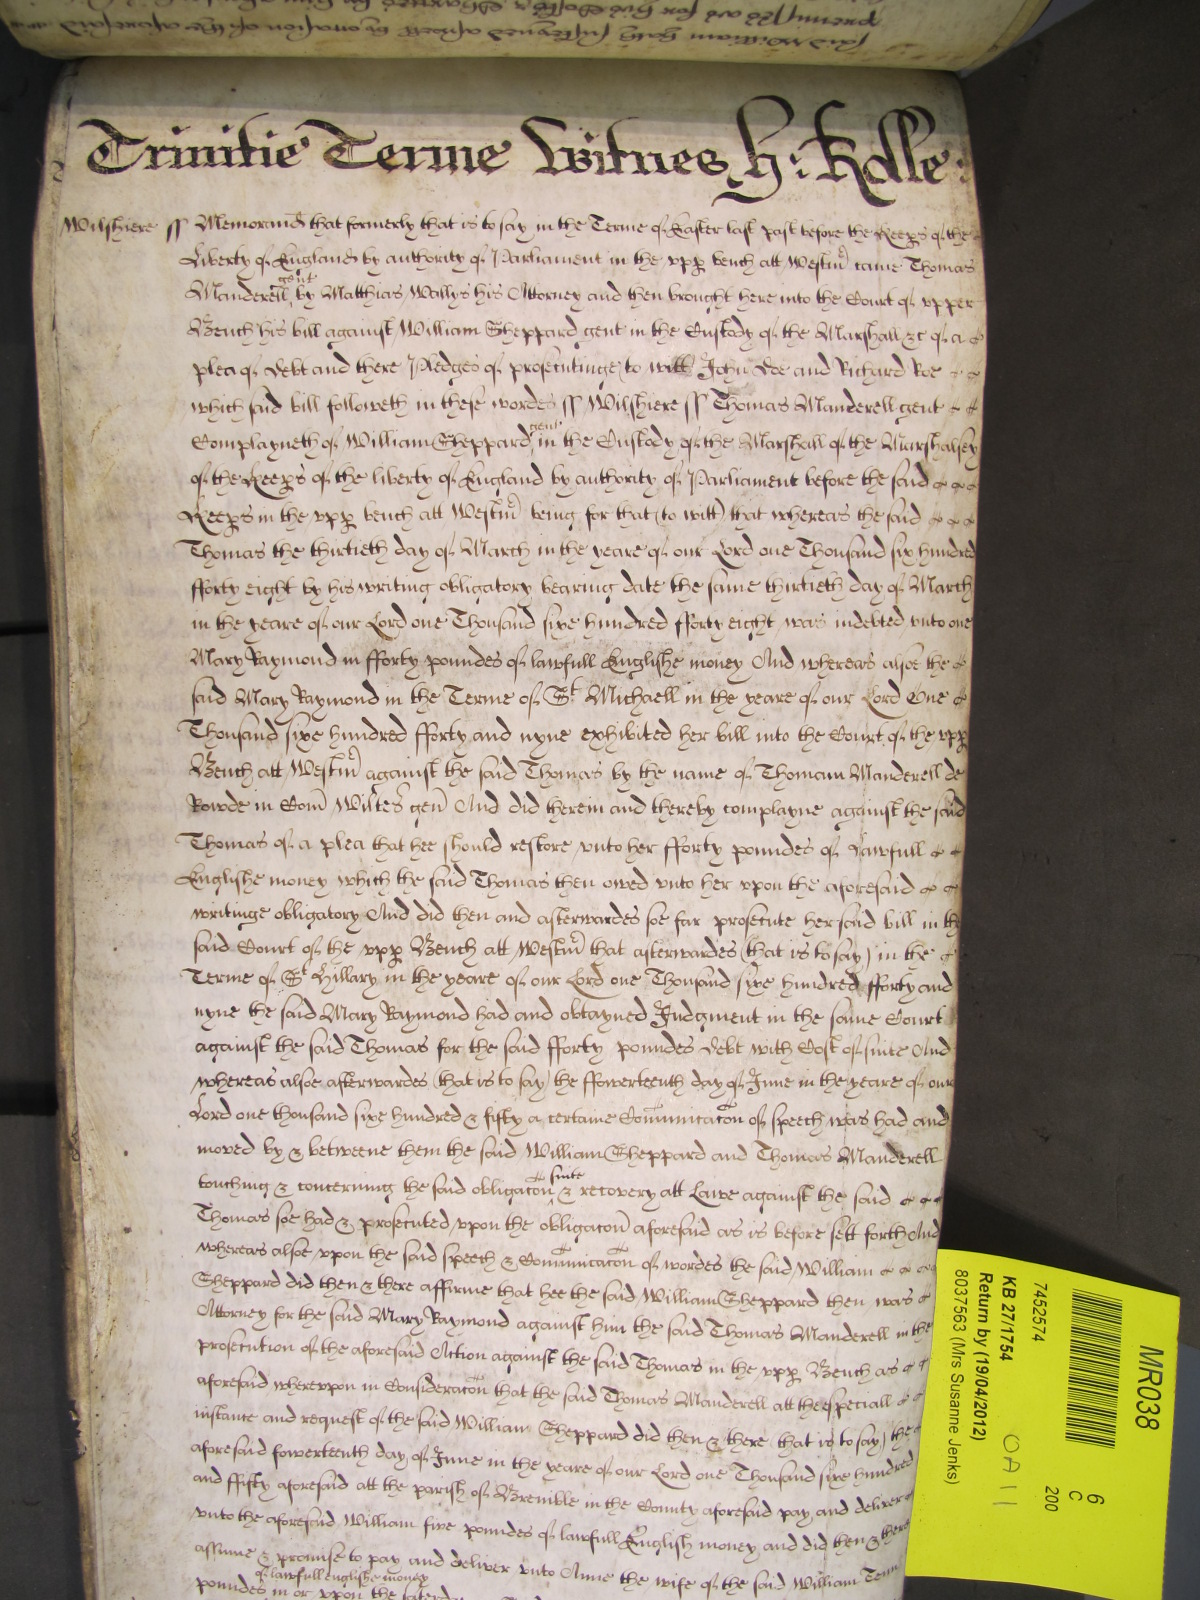 said William hath susteyned aswell by occasion of the aforesaid
premisses as for his Costs & Charges by him
Trinitie Terme Witnes H: Rolle:
Wilshiere ss Memorand that formerly that is to say in the Terme of Easter last past before the Keeps of the
Liberty of England by authority of Parliament in the upp bench att Westm came Thomas
gent
Manderell, by Matthias Wallys his Attorney and then brought here into the Court of upper
Bench his bill against William Sheppard gent in the Custody of the Marshall &c of a
plea of Debt and there Pledges of prosecutinge to witt John Doe and Richard Roe
which said bill followeth in these wordes ss Wilshiere ss Thomas Manderell gent
gent
Complayneth of William Sheppard, in the Custody of the Marshall of the Marshalsey
of the Keeps of the liberty of England by authority of Parliament before the said
Keeps in the upp bench att Westm being for that (to witt) that whereas the said
Thomas the thirtieth day of March in the yeare of our Lord one Thousand six hundred
fforty eight by his writing obligatory bearing date the same thirtieth day of March
in the yeare of our Lord one Thousand sixe hundred fforty eight was indebted unto one
Mary Raymond in fforty poundes of lawfull Englishe money And whereas alsoe the
said Mary Raymond in the Terme of St Michaell in the yeare of our Lord One
Thousand sixe hundred fforty and nyne exhibited her bill into the Court of the upp
Bench att Westm against the said Thomas by the name of Thomam Manderell de
Rowde in Com Wiltes gen And did therein and thereby complayne against the said
Thomas of a plea that hee should restore unto her fforty poundes of Lawfull
Englishe money which the said Thomas then owed unto her upon the aforesaid
writinge obligatory And did then and afterwardes soe far prosecute her said bill in the
said Court of the upp Bench att Westm that afterwardes (that is to say) in the
Terme of St Hillary in the yeare of our Lord one Thousand sixe hundred fforty and
nyne the said Mary Raymond had and obtayned Judgment in the same Court
against the said Thomas for the said fforty poundes Debt with Cost of suite And
whereas alsoe afterwardes (that is to say) the ffowerteenth day of June in the yeare of our
Lord one thousand sixe hundred & fifty a certaine Comunicacon of speech was had and
moved by & betweene them the said William Sheppard and Thomas Manderell
suite
touching & concerning the said obligacon & recovery att Lawe against the said
Thomas soe had & prosecuted upon the obligacon aforesaid as is before sett forth And
whereas alsoe upon the said speech & Comunicacon of wordes the said William
Sheppard did then & there affirme that hee the said William Sheppard then was
Attorney for the said Mary Raymond against him the said Thomas Manderell in the
prosecution of the aforesaid Action against the said Thomas in the upp Bench as
aforesaid whereupon in Consideracon that the said Thomas Manderell att the especiall
instance and request of the said William Sheppard did then & there (that is to say) the
aforesaid fowerteenth day of June in the yeare of our Lord one Thousand sixe hundred
and ffifty aforesaid att the parish of Bremble in the County aforesaid pay and deliver
unto the aforesaid William five poundes of lawfull English money and did then & there
assume & promise to pay and deliver unto Anne the wife of the said William Tenn
of lawfull englishe money
poundes in or upon the saterday
MR038
6
C
200
7452574
KB 27/1754
Return by (19/04/2012)
8037563 (Mrs Susanne Jenks)
OA 11